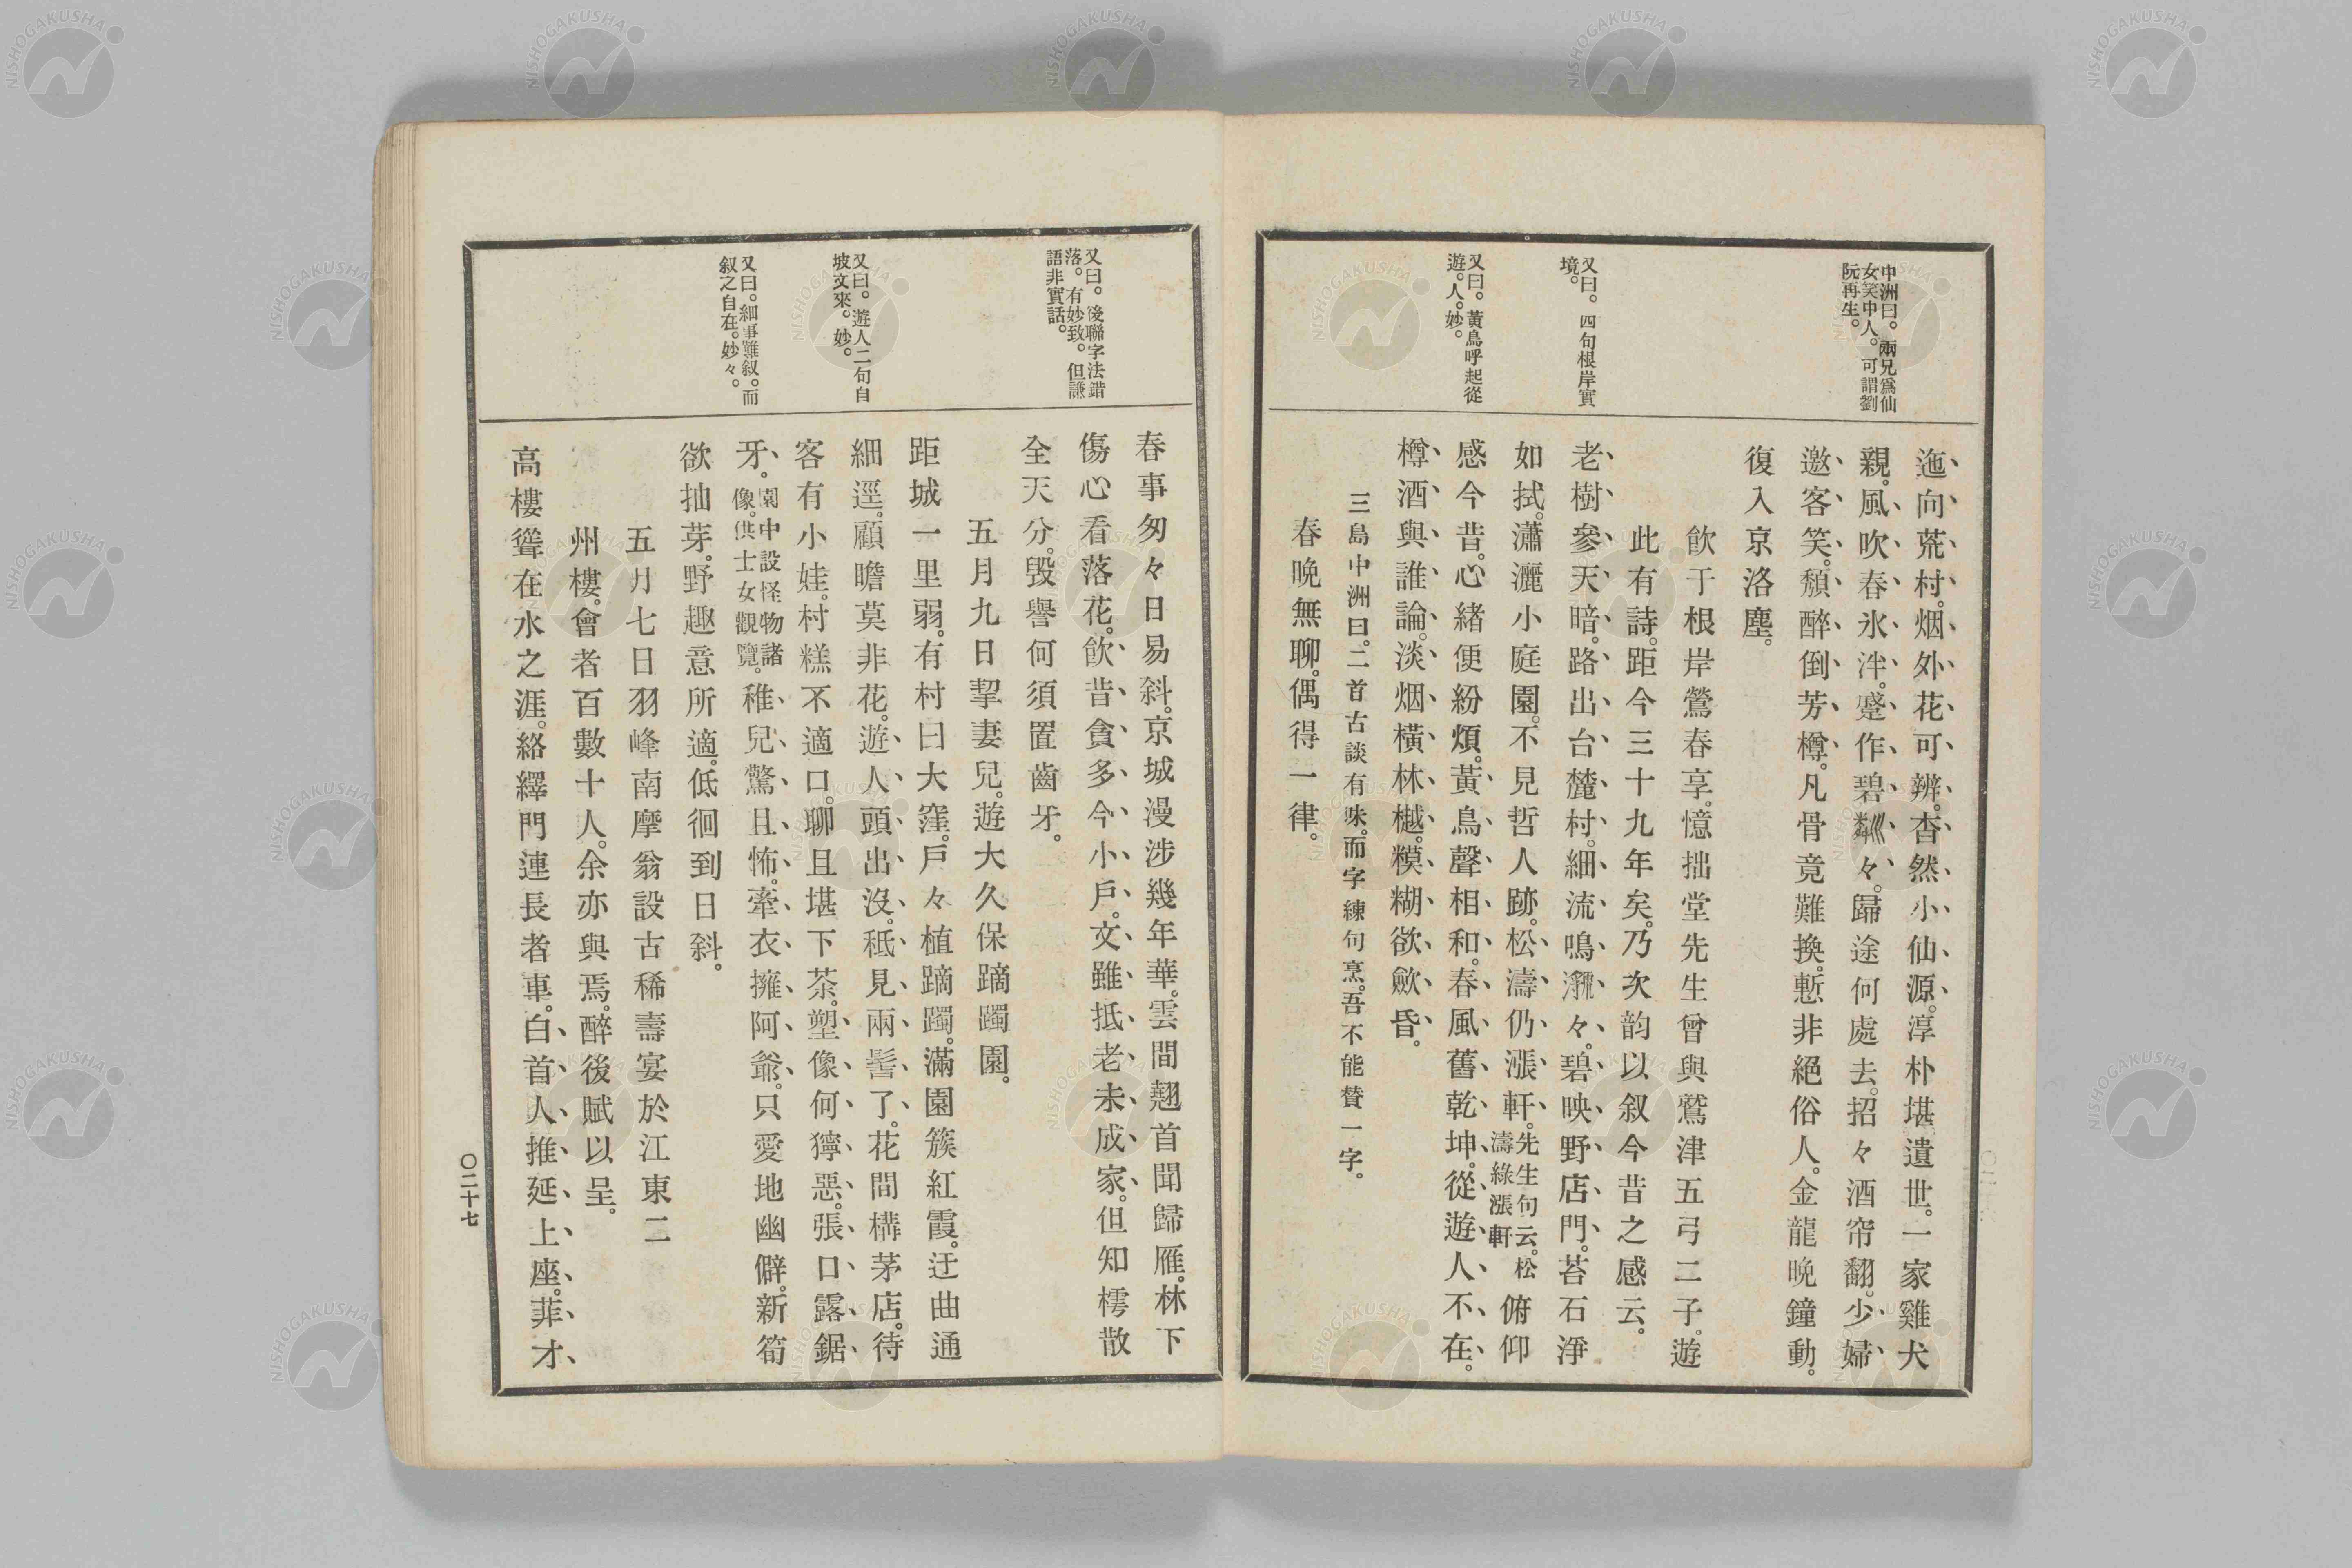 中洲曰。兩兄爲仙
女笑中人。可謂劉
阮再生。
又曰。四句根岸實
境。
又曰。黃鳥呼起從
遊。人。妙。
迤向荒村。烟外花可辨。杳然小仙源。淳朴堪遺世。一家雞犬
親。風吹春氷泮。蹙作碧粼々。歸途何處去。招々酒帘翻。少婦
邀客笑。頹醉倒芳樽。凡骨竟難換。慙非絕俗人。金龍晚鐘動。
復入京洛塵。
飮于根岸鶯春亭。憶拙堂先生曾與鷲津五弓二子。遊
此有詩。距今三十九年矣。乃次韵以叙今昔之感云。
老樹參天暗。路出台麓村。細流鳴㶁々。碧映野店門。苔石淨
如拭。瀟灑小庭園。不見哲人跡。松濤仍漲軒。先生句云。松濤綠漲軒俯仰
感今昔。心緒便紛煩。黃鳥聲相和。春風舊乾坤。從遊人不在。
樽酒與誰論。淡烟橫林樾。糢糊欲歛昏。
三島中洲曰。二首古談有味。而字練句烹。吾不能贊一字。
春晚無聊。偶得一律。
又曰。後聯字法錯
落。有妙致。但謙
語非實話。
又曰。遊人二句自
坡文來。妙。
又曰。細事難叙。而
叙之自在。妙々。
春事匆々日易斜。京城漫涉幾年華。雲間翹首聞歸雁。林下
傷心看落花。飮昔貪多今小戶。文雖抵老未成家。但知樗散
全天分。毀譽何須置齒牙。
五月九日挈妻兒。遊大久保躑躅園。
距城一里弱。有村曰大窪。戶々植躑躅。滿園簇紅霞。迂曲通
細逕。顧瞻莫非花。遊人頭出沒。秪見兩髻了。花間構茅店。待
客有小娃。村糕不適口。聊且堪下茶。塑像何獰惡。張口露鋸
牙。園中設怪物諸像。供士女觀覽。稚兒驚且怖。牽衣擁阿爺。只愛地幽僻。新筍
欲抽芽。野趣意所適。低徊到日斜。
五月七日羽峰南摩翁設古稀壽宴於江東二
州樓。會者百數十人。余亦與焉。醉後賦以呈。
高樓聳在水之涯。絡繹門連長者車。白首人推延上座。菲才
〇二十七
NISHOGAKUSHA